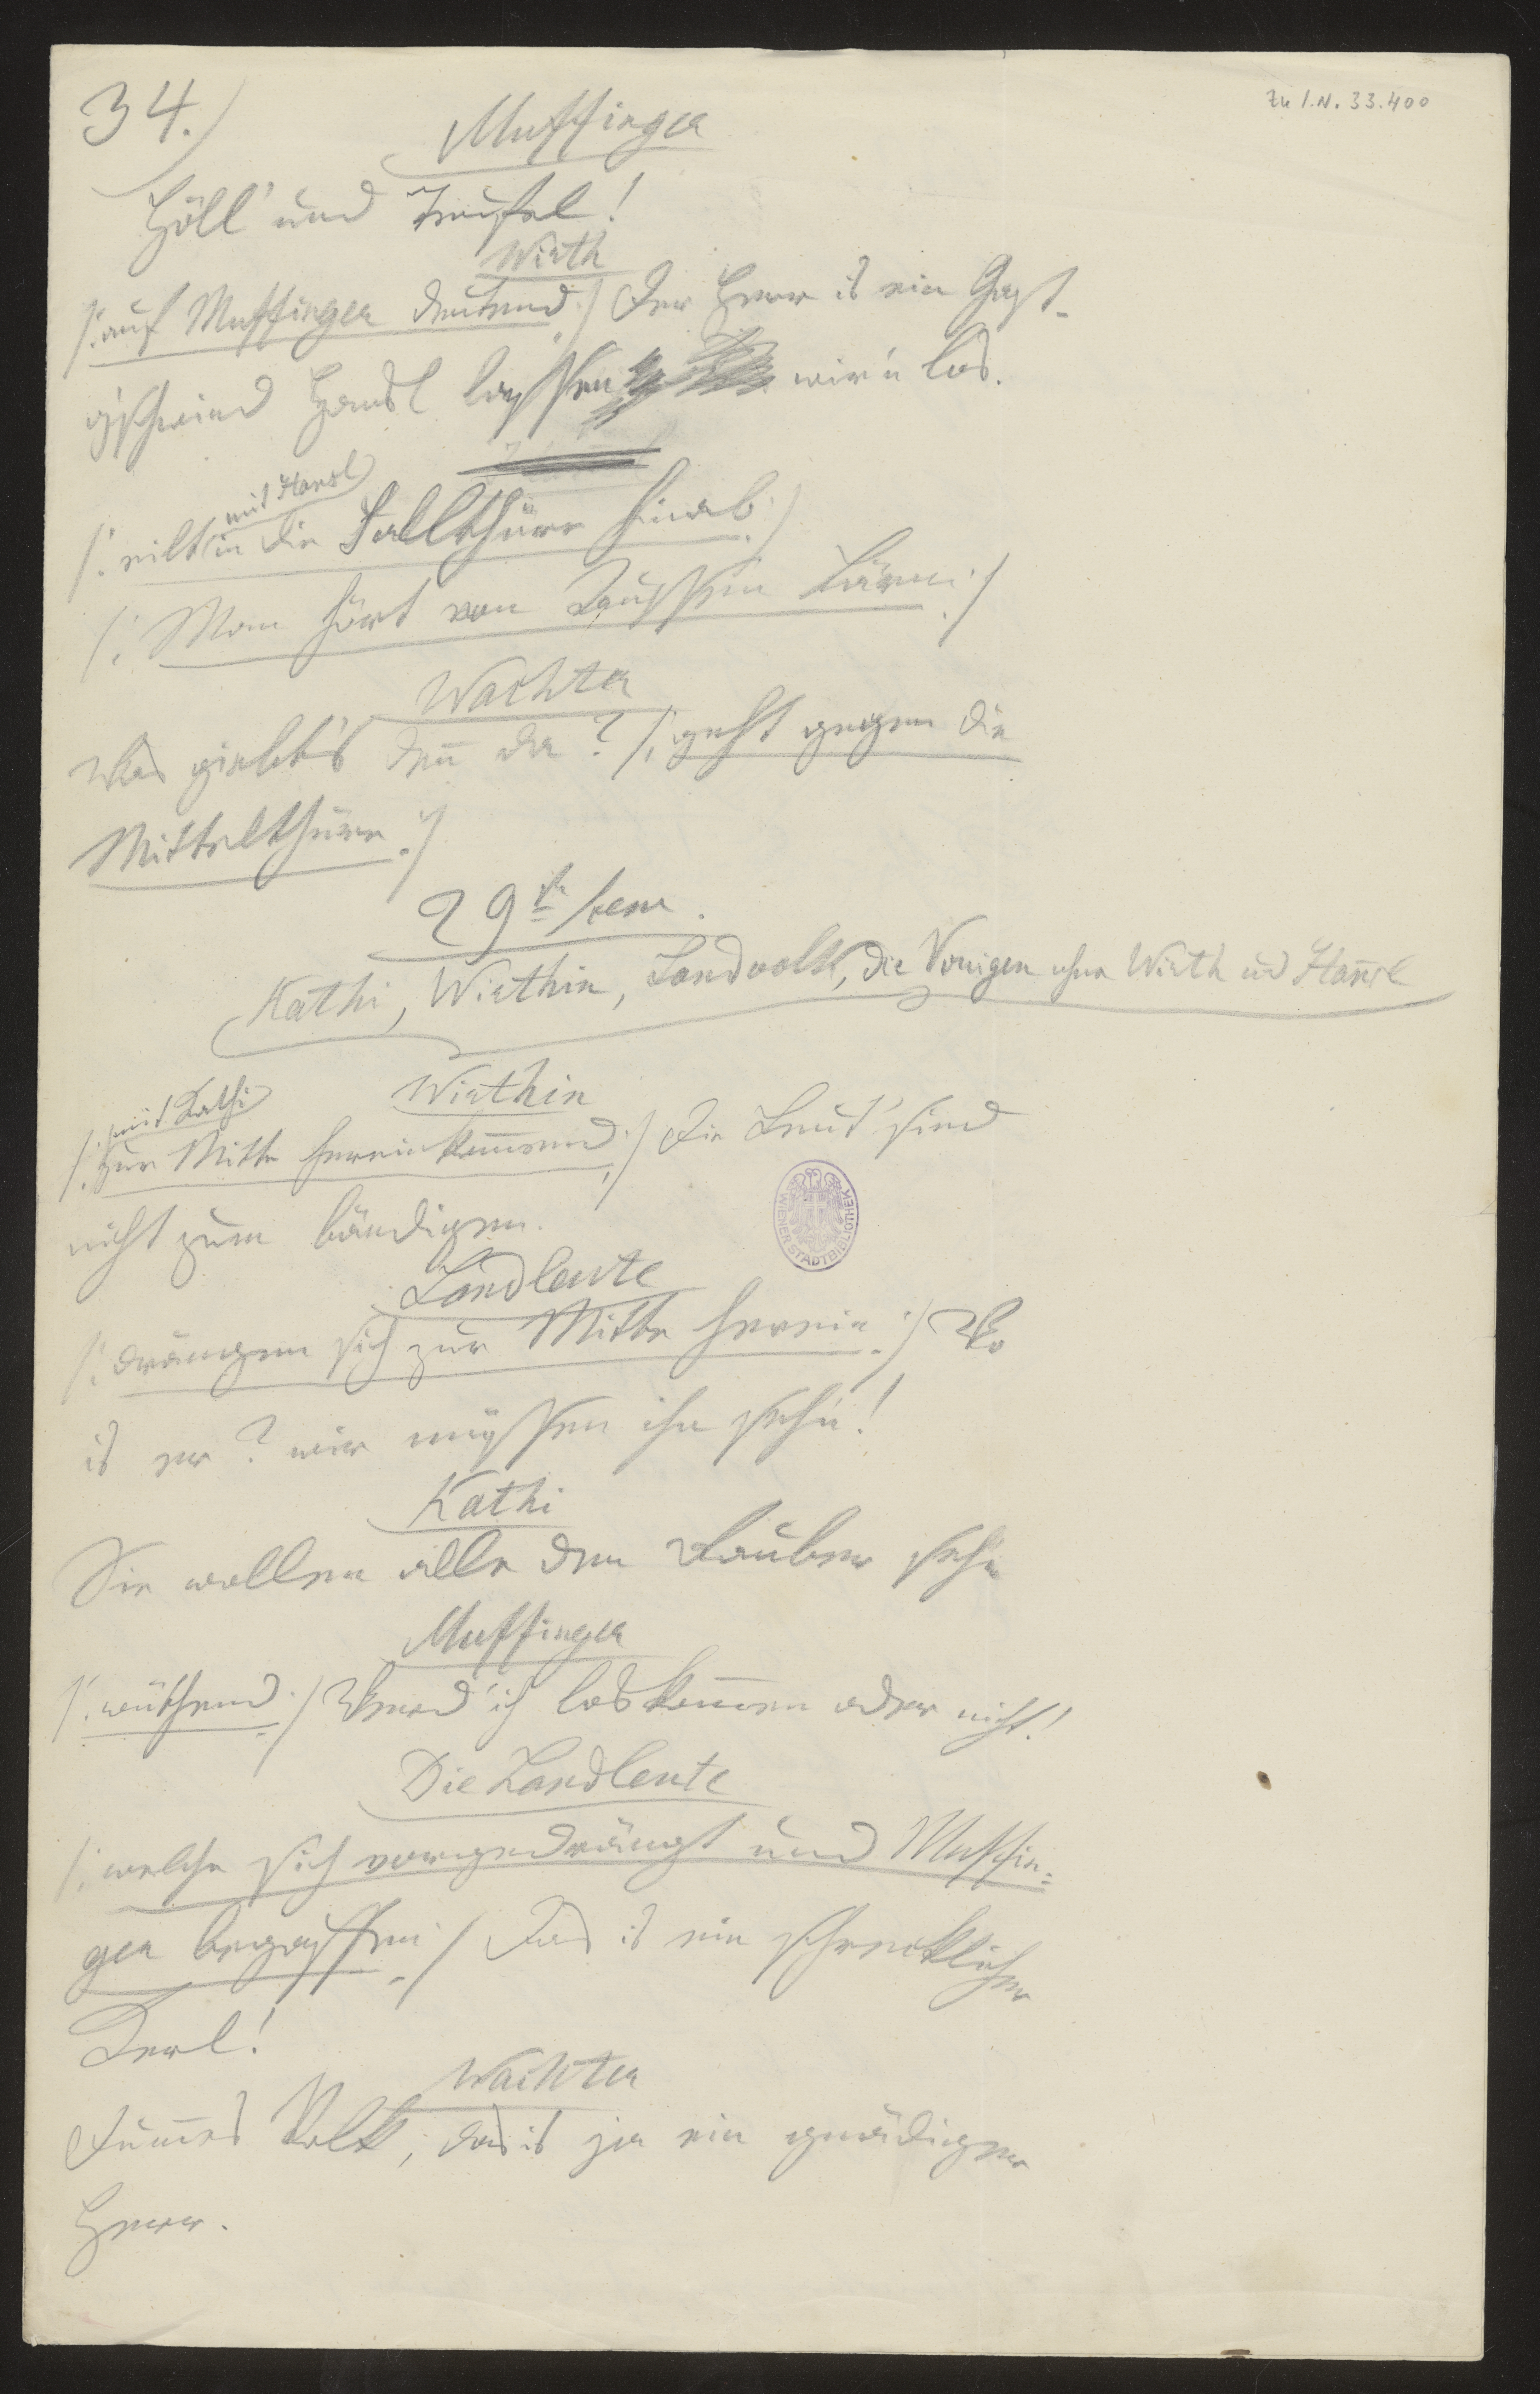 34.)
Zu I.N. 33.400
Muffinger
Höll' und Teufel!
Wirth
/: auf Muffinger deutend :/ Der Herr is ein Gast.
g'schwind Hansl lassen wir'n los.
mit Hansl
/: eilt in die Fallthüre hinab :/
/: Man hört von Draußen Lärm :/
Wachter
Was giebt's deñ da? /: geht gegen die
Mittelthüre :/
29te Scene.
Kathi, Wirthin, Landvolk, die Vorigen ohne Wirth ud Hansl
Wirthin
mit Kathi
/: zur Mitte hereinkom̄end :/ Die Leut' sind
nicht zum bändigen.
WIENER STADTBIBLIOTHEK
Landleute
/: drängen sich zur Mitte herein :/ Wo
is er? wir müssen ihn sehn!
Kathi
Sie wollen alle den Rauber sehn
Muffinger
/: wüthend :/ Werd' ich loskom̄en oder nicht!
Die Landleute
/: welche sich vorgedrängt und Muffin=
ger begaffen :/ Das is ein schrecklicher
Kerl!
Wachter
Dum̄es Volk, das is ja ein gnädiger
Herr.